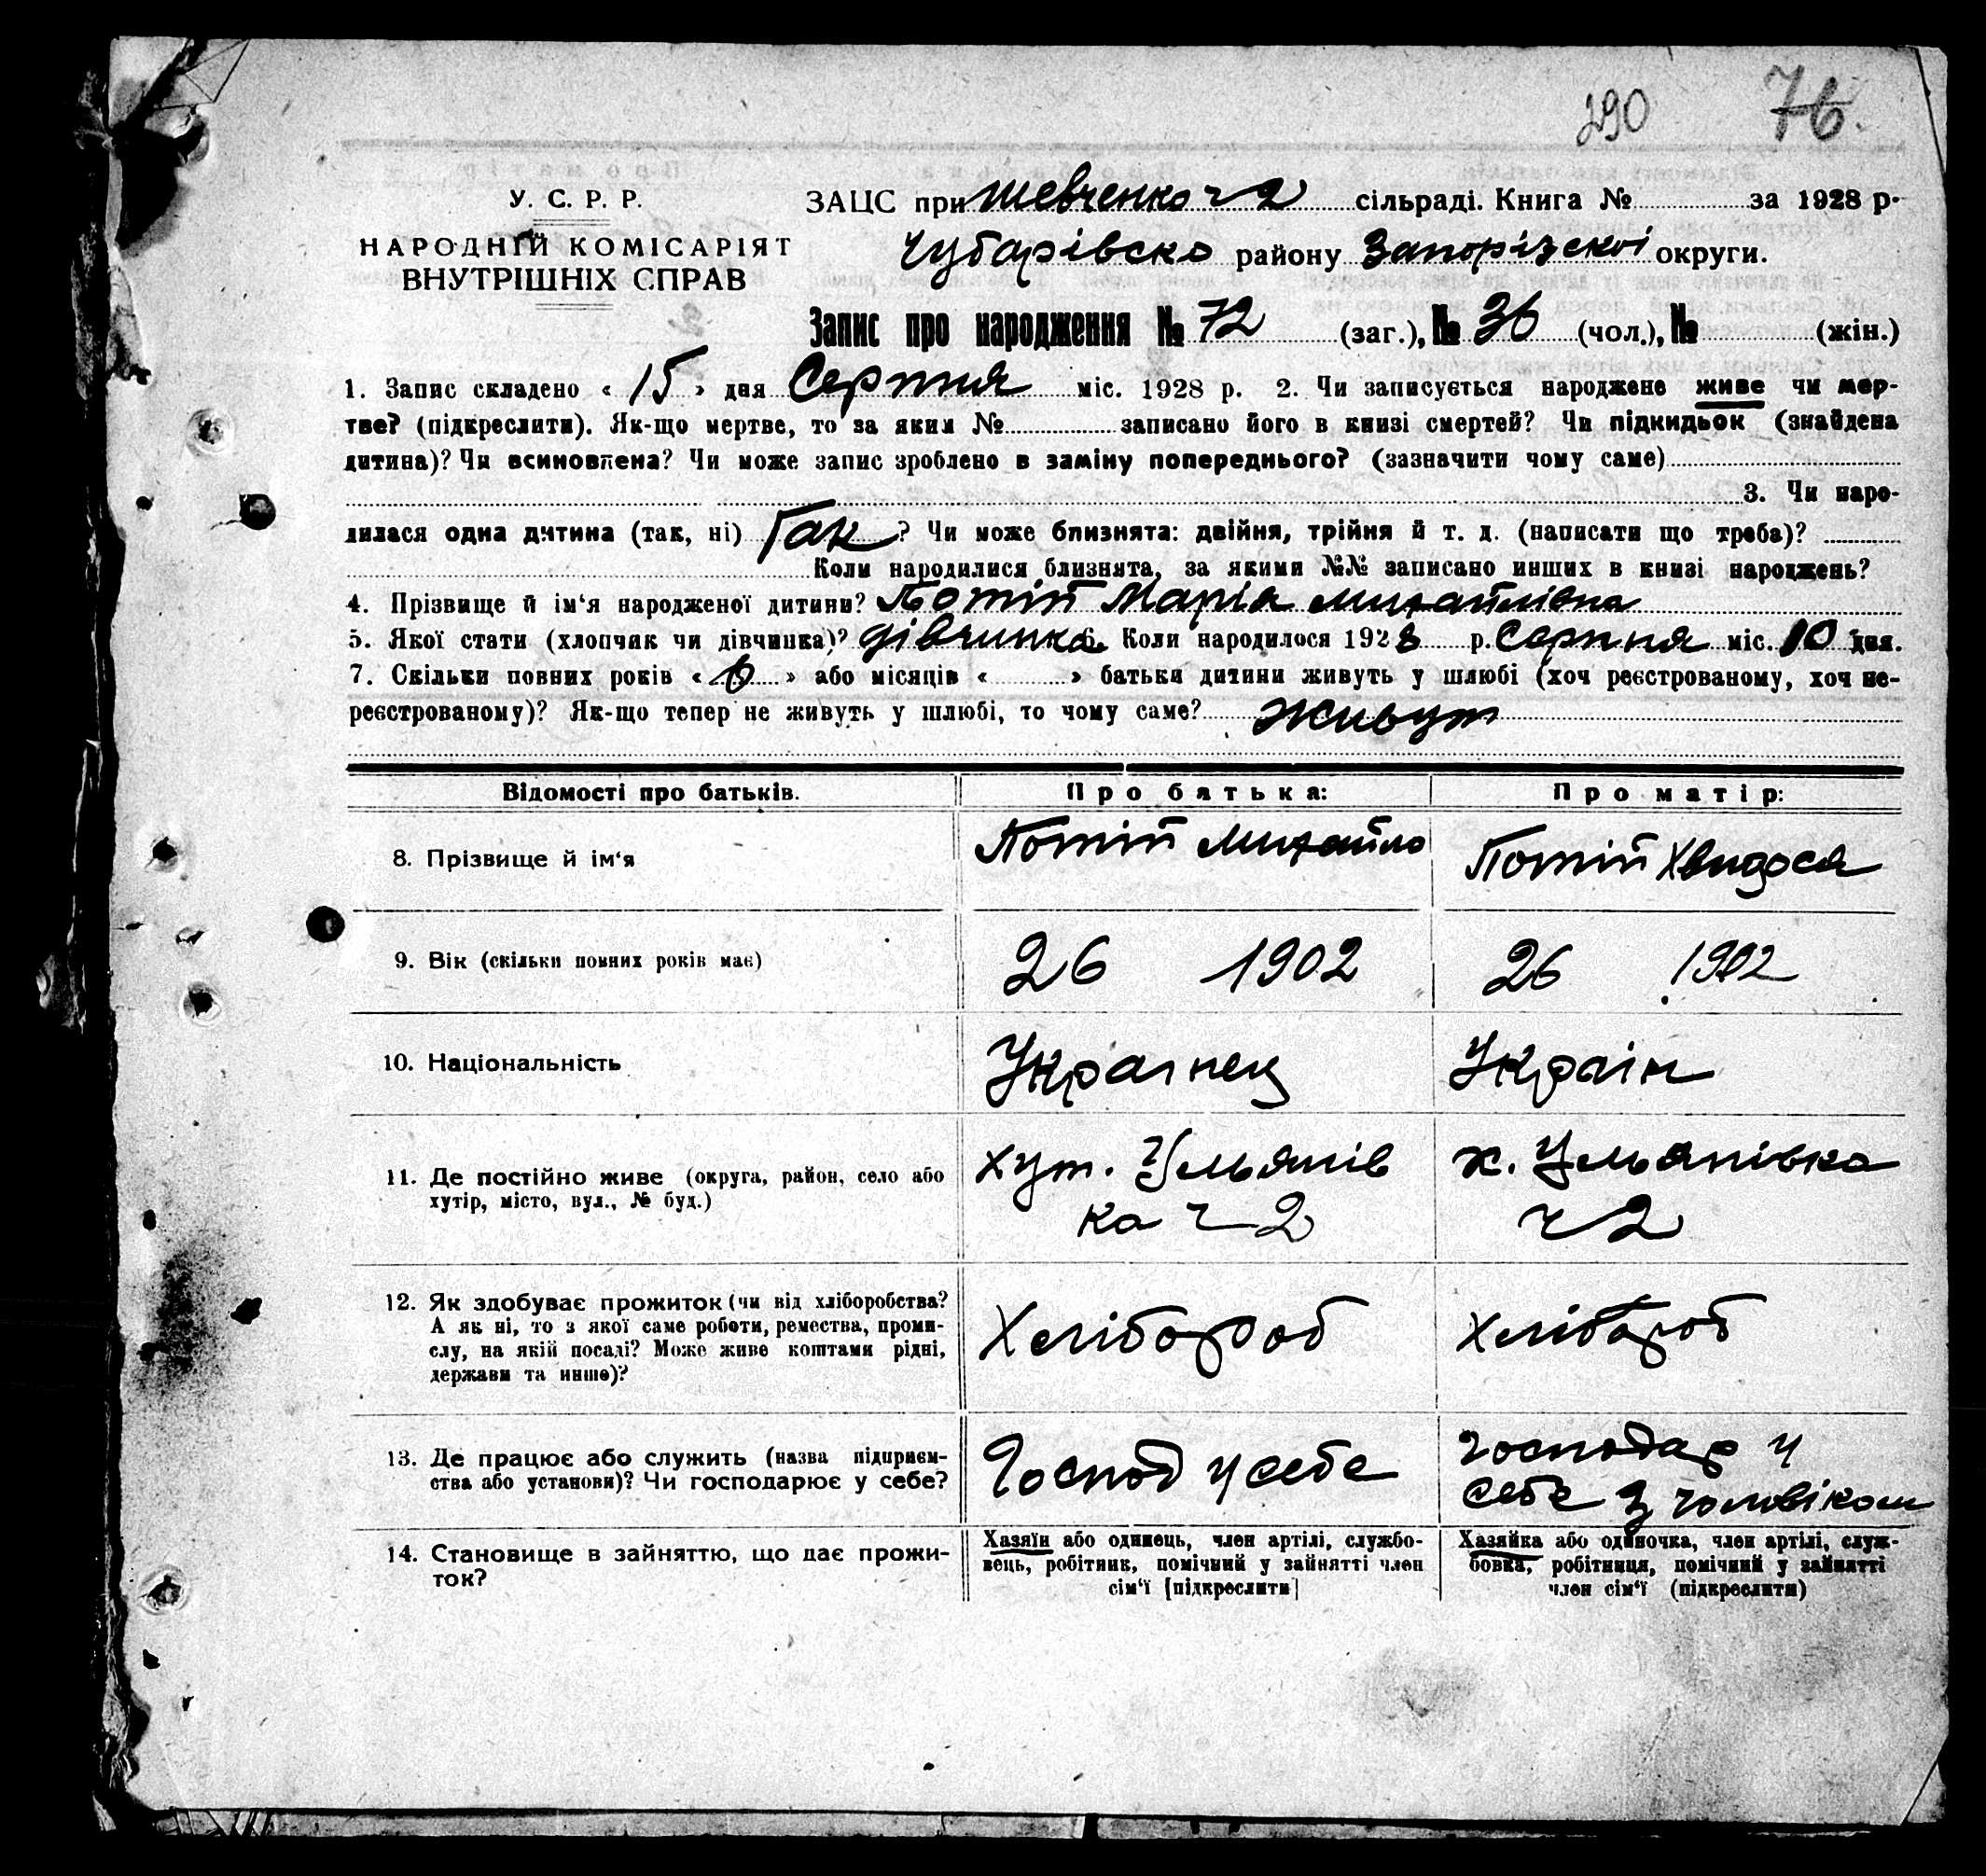 290 76.
У. С. Р. Р.
НАРОДНІЙ КОМІСАРІЯТ
ВНУТРІШНІХ СПРАВ
ЗАЦС при Шевченко ч 2 сільраді. Книга № за 1928 р.
Чубарівско району Запорізскоі округи.
Запис про народження № 72 (заг.), № 36 (чол.), № (жін.)
1. Запис складено « 15 » дня Серпня міс. 1928 р. 2. Чи записується народжене живе чи мер-
тве? (підкреслити). Як-що мертве, то за яким № записано його в книзі смертей? Чи підкидьок (знайдена
дитина)? Чи всиновлена? Чи може запис зроблено в заміну попереднього? (зазначити чому саме)
3. Чи наро-
дилася одна дитина (так, ні) Так ? Чи може близнята: двійня, трійня й т. д. (написати що треба)?
Коли народилися близнята, за якими №№ записано инших в книзі народжень?
4. Прізвище й ім‘я народженої дитини? Потій Марія Михайлівна
5. Якої стати (хлопчик чи дівчинка)? дівчинка 6. Коли народилося 1928 р. Серпня міс. 10 дня.
7. Скільки повних років « 6 » або місяців « » батьки дитини живуть у шлюбі (хоч реєстрованому, хоч не-
реєстрованому)? Як-що тепер не живуть у шлюбі, то чому саме? Живут
Відомості про батьків. Про батька: Про матір:
8. Прізвище й ім‘я Потій Михайло Потій Хвидося
9. Вік (скільки повних років має) 26 1902 26 1902
10. Національність Украінец Украін
11. Де постійно живе (округа, район, село або
хутір, місто, вул., № буд.)
хут. Ульянів
ка ч 2
х. Ульянівка
ч 2
12. Як здобуває прожиток (чи від хліборобства?
А як ні, то з якої саме роботи, ремества, проми-
слу, на якій посаді? Може живе коштами рідні,
держави та инше)?
Хлібороб Хлібороб
13. Де працює або служить (назва підприєм-
ства або установи)? Чи господарює у себе?
Господ у себе
господар у
себе з чоловіком
14. Становище в зайняттю, що дає прожи-
ток?
Хазяїн або одинець, член артілі, службо-
вець, робітник, помічний у зайнятті член
сім‘ї [підкреслити]
Хазяйка або одиночка, член артілі, служ-
бовка, робітниця, помічний у зайнятті
член сім‘ї (підкреслити)